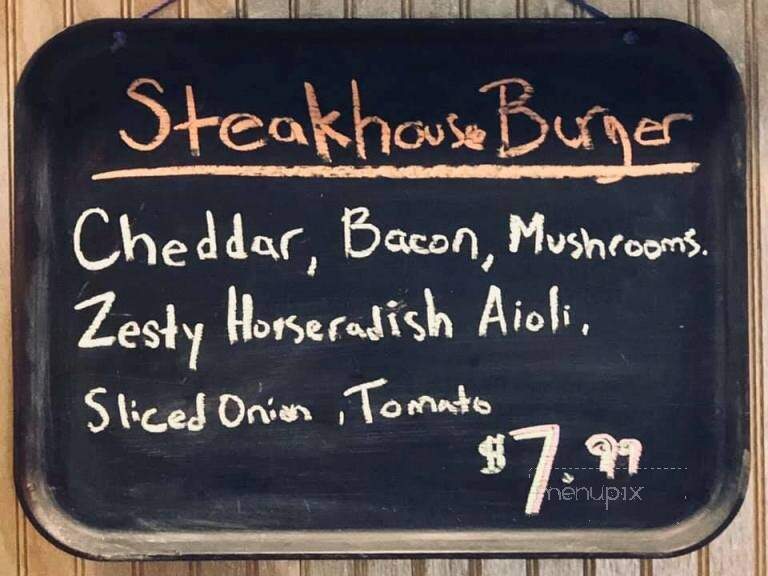 Steakhouse Burger
Cheddar, Bacon, Mushrooms.
Zesty Horseradish Aioli,
Sliced Onion, Tomato
$7.99
menupix